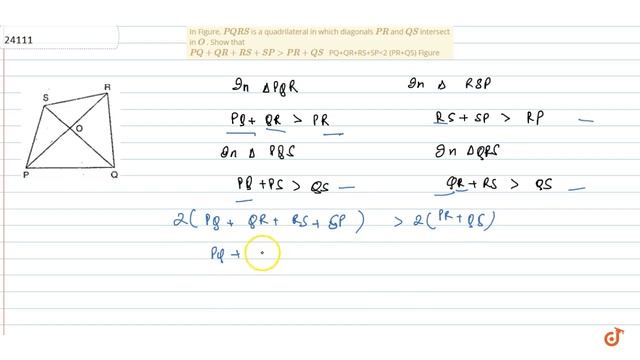 24111
In Figure, PQRS is a quadrilateral in which diagonals PR and QS intersect
in O . Show that
PQ + QR + RS + SP > PR + QS PQ+QR+RS+SP<2 (PR+QS) Figure
In Δ PQR
In Δ RSP
PQ + QR > PR
RS + SP > RP
In Δ PQS
In Δ QRS
PQ + PS > QS
QR + RS > QS
2(PQ + QR + RS + SP) > 2(PR + QS)
PQ +
S
R
O
P
Q
doubtnut